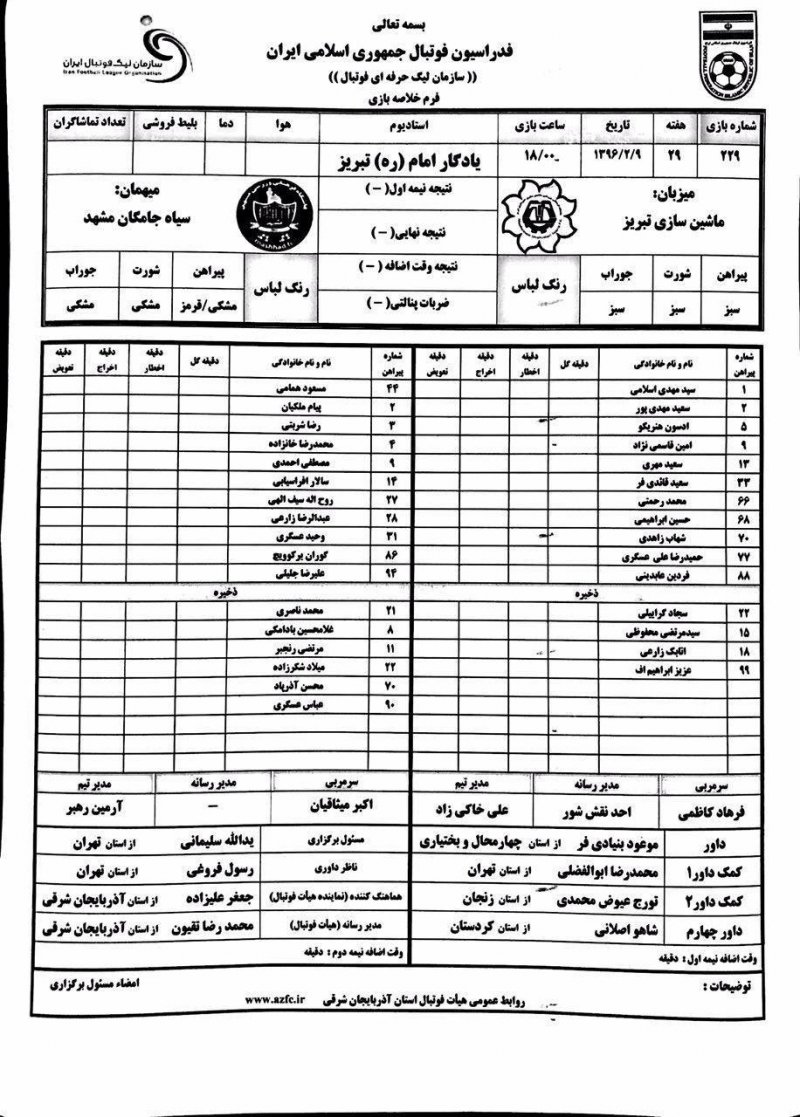 بسمه تعالی
فدراسیون فوتبال جمهوری اسلامی ایران
(( سازمان لیگ حرفه ای فوتبال ))
فرم خلاصه بازی
سازمان لیگ فوتبال ایران
Iran Football League Organization
شماره بازی هفته تاریخ ساعت بازی استادیوم هوا دما بلیط فروشی تعداد تماشاگران
۲۲۹ ۲۹ ۱۳۹۶/۲/۹ ۱۸/۰۰ یادگار امام (ره) تبریز
میزبان: ماشین سازی تبریز
نتیجه نیمه اول( – )
نتیجه نهایی( – )
میهمان: سیاه جامگان مشهد
پیراهن شورت جوراب رنگ لباس نتیجه وقت اضافه ( – ) رنگ لباس پیراهن شورت جوراب
سبز سبز سبز ضربات پنالتی( – ) مشکی/قرمز مشکی مشکی
شماره پیراهن نام و نام خانوادگی دقیقه گل دقیقه اخطار دقیقه اخراج دقیقه تعویض شماره پیراهن نام و نام خانوادگی دقیقه گل دقیقه اخطار دقیقه اخراج دقیقه تعویض
۱ سید مهدی اسلامی ۴۴ مسعود همامی
۲ سعید مهدی پور ۲ پیام ملکیان
۵ ادسون هنریکو ۳ رضا شربتی
۹ امین قاسمی نژاد ۴ محمدرضا خانزاده
۱۳ سعید مهری ۹ مصطفی احمدی
۳۳ سعید قائدی فر ۱۴ سالار افراسیابی
۶۶ محمد رحمتی ۲۷ روح اله سیف الهی
۶۸ حسین ابراهیمی ۲۸ عبدالرضا زارعی
۷۰ شهاب زاهدی ۳۱ وحید عسگری
۷۷ حمیدرضا علی عسگری ۸۶ گوران یرکوویچ
۸۸ فردین عابدینی ۹۴ علیرضا جلیلی
ذخیره ذخیره
۲۲ سجاد گراییلی ۲۱ محمد ناصری
۱۵ سیدمرتضی محفوظی ۸ غلامحسین بادامکی
۱۸ اتابک زارعی ۱۱ مرتضی رنجبر
۹۹ عزیز ابراهیم اف ۲۲ میلاد شکرزاده
۷۰ محسن آذرپاد
۹۰ عباس عسگری
سرمربی مدیر رسانه مدیر تیم سرمربی مدیر رسانه مدیر تیم
فرهاد کاظمی احد نقش شور علی خاکی زاد اکبر میثاقیان – آرمین رهبر
داور موعود بنیادی فر از استان چهارمحال و بختیاری مسئول برگزاری یدالله سلیمانی از استان تهران
کمک داور۱ محمدرضا ابوالفضلی از استان تهران ناظر داوری رسول فروغی از استان تهران
کمک داور۲ تورج عیوض محمدی از استان زنجان هماهنگ کننده (نماینده هیأت فوتبال) جعفر علیزاده از استان آذربایجان شرقی
داور چهارم شاهو اصلانی از استان کردستان مدیر رسانه (هیأت فوتبال) محمد رضا نقیون از استان آذربایجان شرقی
وقت اضافه نیمه اول : دقیقه وقت اضافه نیمه دوم : دقیقه
توضیحات : امضاء مسئول برگزاری
روابط عمومی هیأت فوتبال استان آذربایجان شرقی www.azfc.ir